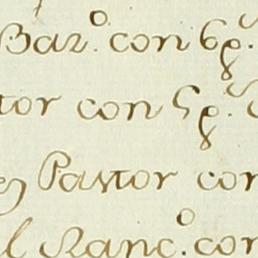 Baz.º con 6p.s
tor con 5p.s
Pastor con
l Ranc.º con